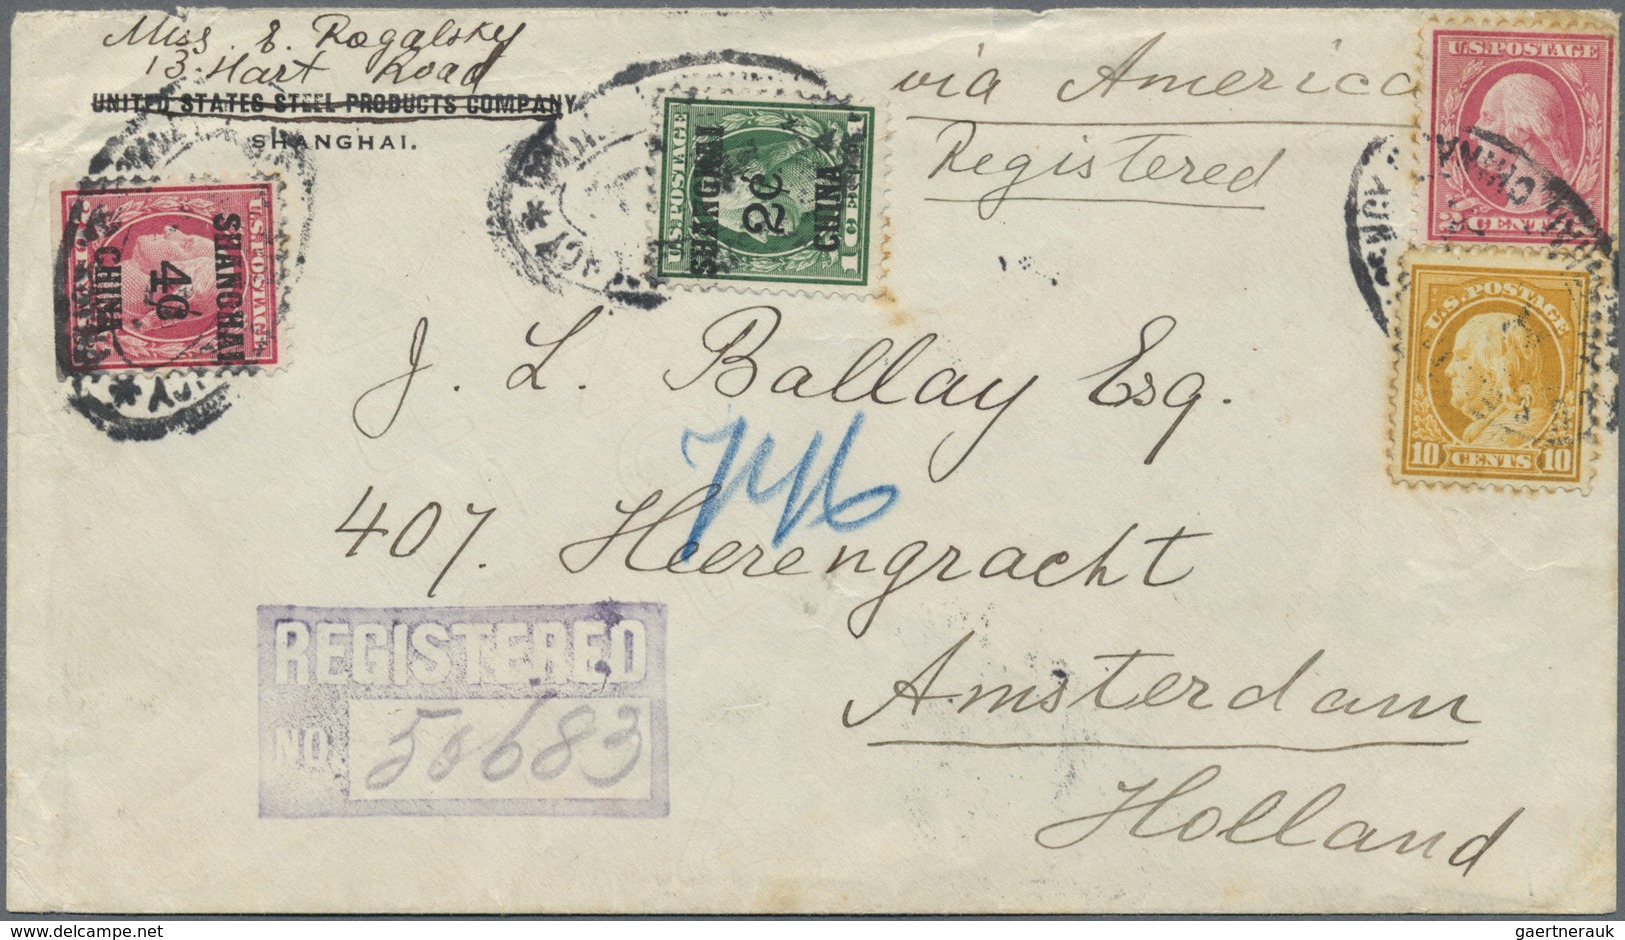 Miss. E. Rogalsky
13 Hart Road
UNITED STATES STEEL PRODUCTS COMPANY
SHANGHAI.
via America
Registered
U.S. POSTAGE
2 CENTS
U.S. POSTAGE
10 CENTS 10
U.S. POSTAGE
SHANGHAI
2¢
CHINA
1 CENT
U.S. POSTAGE
SHANGHAI
4¢
CHINA
J. L. Ballay Esq.
746
407. Heerengracht
Amsterdam
Holland
REGISTERED
NO. 50683
delcampe.net
gaertnerauk